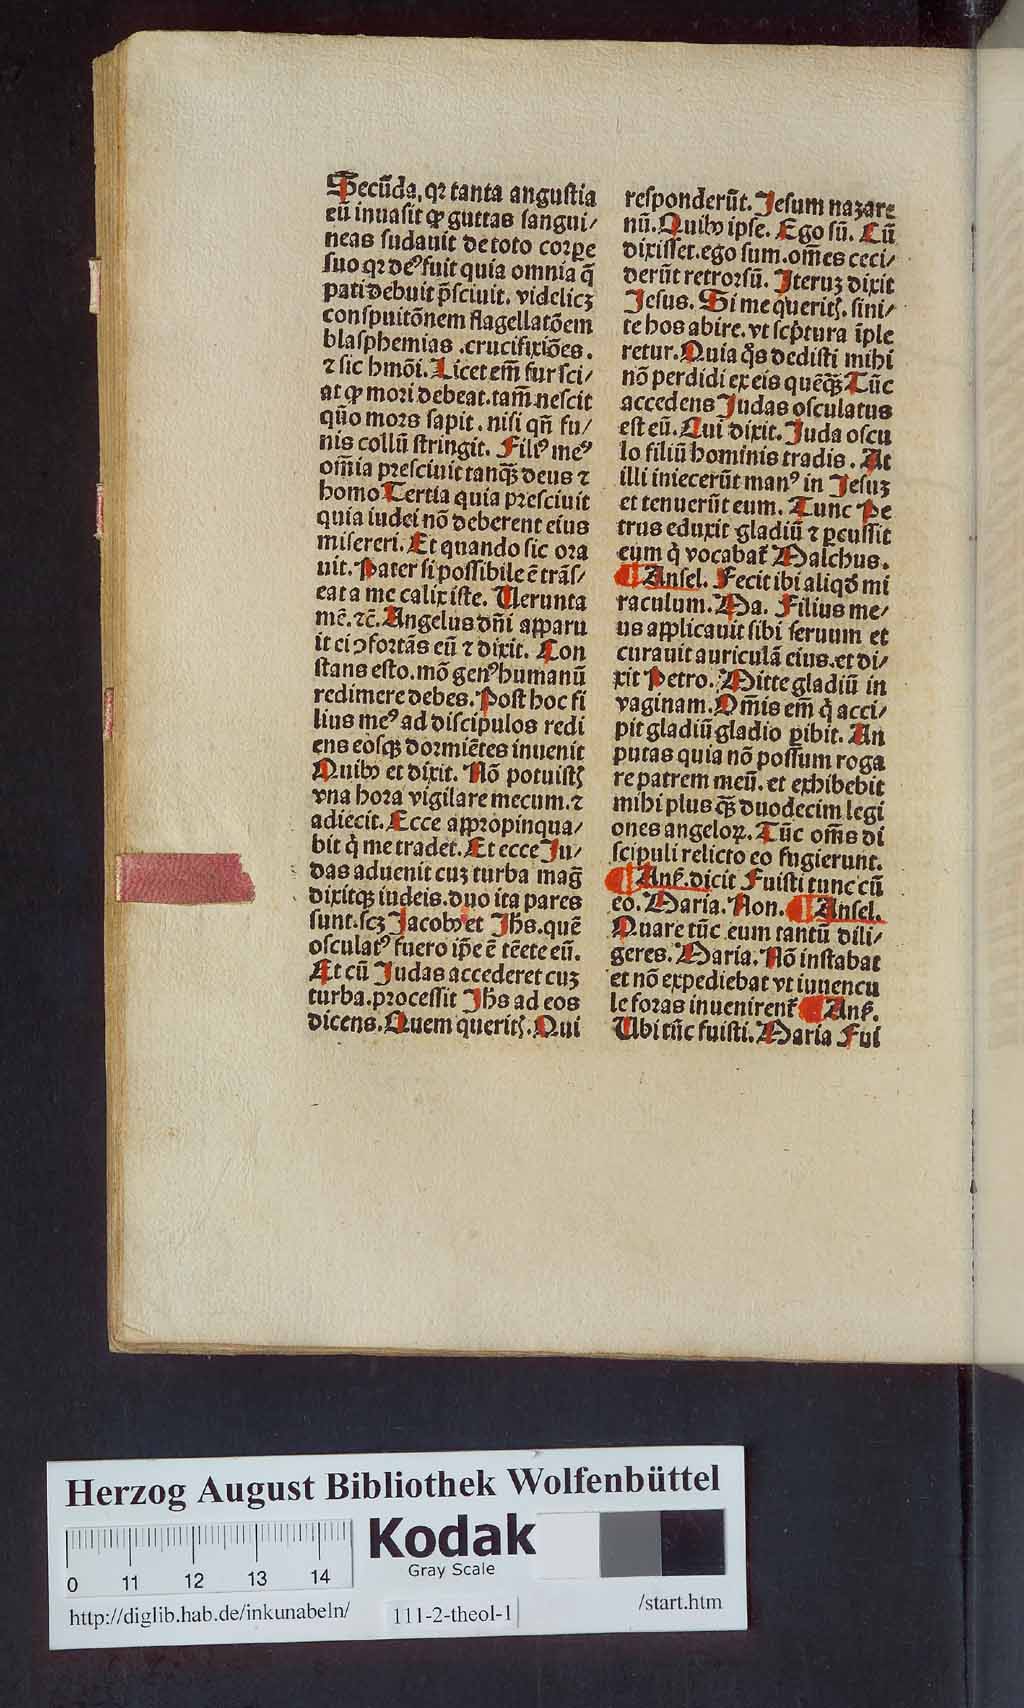 Secūda, qꝛ tanta anguſtia
eū inuaſit ꝙ guttas ſangui/
neas ſudauit de toto coꝛpe
ſuo qꝛ deꝰ fuit quia omnia q̄
pati debuit p̄ſciuit. videlicꝫ
conſpuitōnem flagellatōem
blaſphemias .crucifixiōes.
⁊ ſic hmōi. Licet em̄ fur ſci/
at ꝙ moꝛi debeat. tam̄ neſcit
quō moꝛs ſapit . niſi qn̄ fu/
nis collū ſtringit. Filiꝰ meꝰ
om̄ia pꝛeſciuit tanqꝫ̄ deus ⁊
homo Tertia quia pꝛeſciuit
quia iudei nō deberent eius
miſereri. Et quando ſic oꝛa
uit. Pater ſi poſſibile ē trāſ/
eat a me calix iſte. Uerunta
mē. ⁊c̄. Angelus dn̄i apparu
it ei ↄfoꝛtās eū ⁊ dixit. Con
ſtans eſto. mō genꝰ humanū
redimere debes. Poſt hoc fi
lius meꝰ ad diſcipulos redi
ens eoſqꝫ doꝛmiētes inuenit
Quibꝰ et dixit. Nō potuiſtꝭ
vna hoꝛa vigilare mecum. ⁊
adiecit. Ecce appꝛopinqua/
bit q̇ me tradet. Et ecce Ju/
das aduenit cuꝫ turba maḡ
dixitqꝫ iudeis. duo ita pares
ſunt. ſcꝫ Jacobꝰ et Jh̄s. quē
oſculatꝰ fuero ip̄e ē tēete eū.
At cū Judas accederet cuꝫ
turba. pꝛoceſſit Jh̄s ad eos
dicens. Quem queritꝭ. Qui
reſponderūt. Jeſum naꝫare
nū. Quibꝰ ipſe. Ego ſū. Cū
dixiſſet. ego ſum. om̄es ceci/
derūt retroꝛſū. Iteruꝫ dixit
Jeſus. Si me queritꝭ. ſini/
te hos abire. vt ſcp̄tura īple
retur. Quia q̇s dediſti mihi
nō perdidi ex eis quēqꝫ̄ Tūc
accedens Judas oſculatus
eſt eū. Cui dixit. Juda oſcu
lo filiū hominis tradis. At
illi iniecerūt manꝰ in Jeſuꝫ
et tenuerūt eum. Tunc Pe
trus eduxit gladiū ⁊ ꝑcuſſit
eum q̇ vocabat᷑ Malchus.
¶ Anſel. Fecit ibi aliqď mi
raculum. Ma. Filius me/
us applicauit ſibi ſeruum et
curauit auriculā eius. et di/
xit Petro. Mitte gladiū in
vaginam. Om̄is em̄ q̇ acci/
pit gladiū gladio ꝑibit. An
putas quia nō poſſum roga
re patrem meū. et exhibebit
mihi plus qꝫ̄ duodecim legi
ones angeloꝝ. Tūc om̄s di
ſcipuli relicto eo fugierunt.
¶ Anẜ. dicit Fuiſti tunc cū
eo. Maria. Non. ¶ Anſel.
Quare tūc eum tantū dili/
geres. Maria. Nō inſtabat
et nō expediebat vt iuuencu
le foꝛas inuenirent᷑ ¶ Anẜ.
Ubi tūc fuiſti. Maria Fui
Herzog August Bibliothek Wolfenbüttel
0 11 12 13 14
Kodak
Gray Scale
http://diglib.hab.de/inkunabeln/ 111-2-theol-1 /start.htm